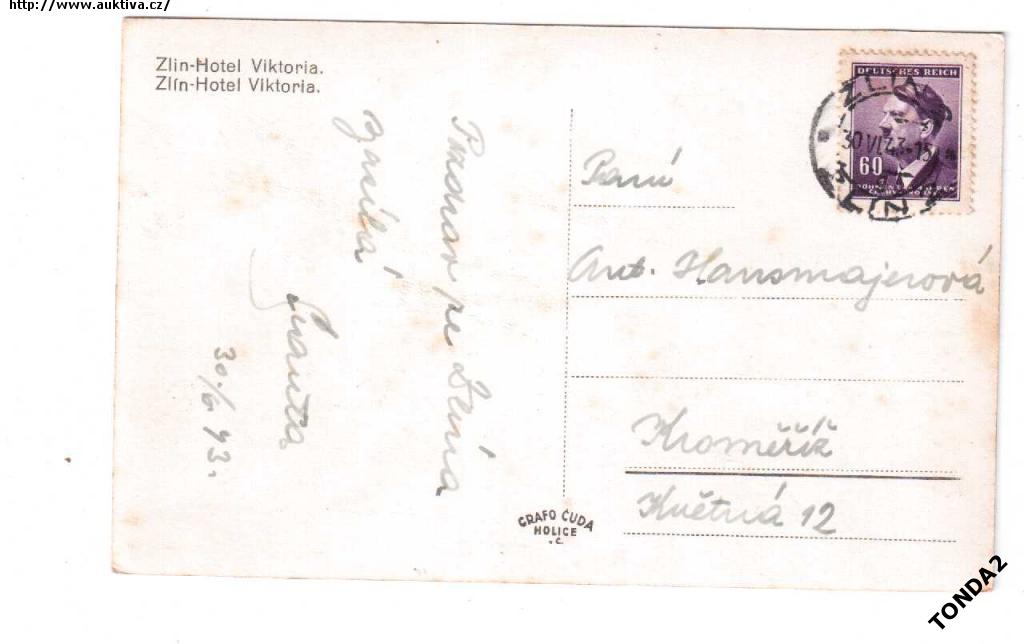 http://www.auktiva.cz/
Zlin-Hotel Viktoria.
Zlín-Hotel Viktoria.
Pozdrav ze Zlína
zasílá
30/6 43.
DEUTSCHES REICH
60
ZLIN
30 VI 43-15
Paní
Ant. Hansmajerová
Kroměříž
Květná 12
GRAFO ČUDA
HOLICE
TONDA2